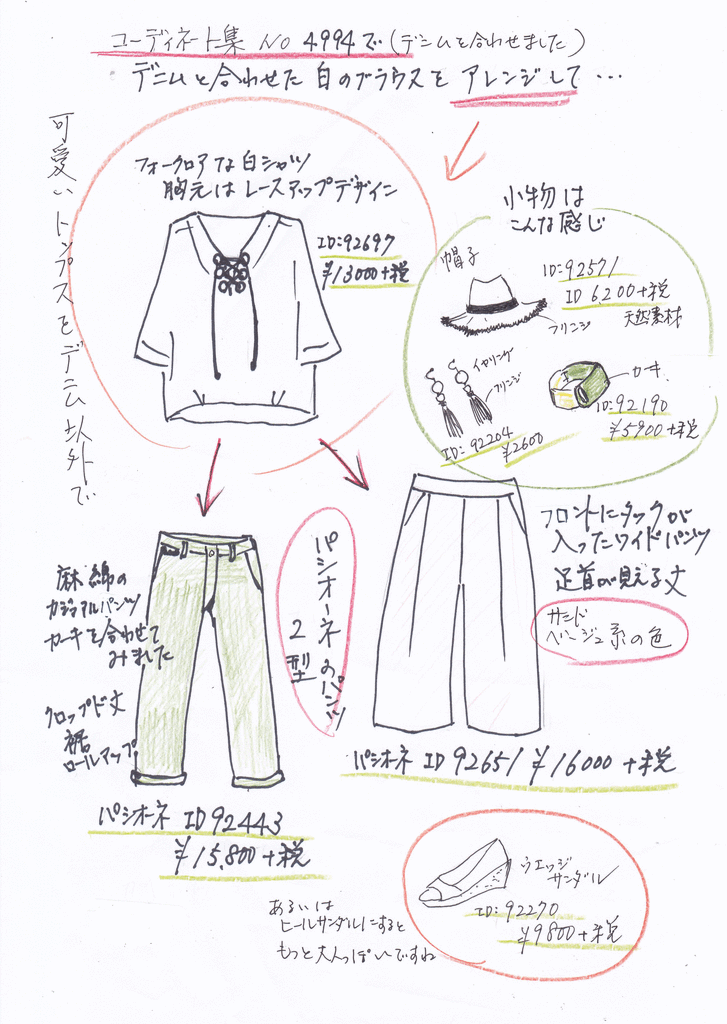 コーディネート集 No 4994で(デニムと合わせました)
デニムと合わせた白のブラウスをアレンジして…
可愛いトップスをデニム以外で
フォークロアな白シャツ
胸元はレースアップデザイン
ID:92697
¥13000+税
小物は
こんな感じ
帽子
ID:92571
ID 6,200+税
天然素材
フリンジ
イヤリング
フリンジ
カーキ
ID:92190
¥5900+税
ID:92204
¥2600
麻綿の
カジュアルパンツ
カーキを合わせて
みました
クロップド丈
裾
ロールアップ
パシオーネのパンツ
2型
フロントにタックが
入ったワイドパンツ
足首が見える丈
サンド
ベージュ系の色
パシオーネ ID 92651 ¥16000+税
パシオーネ ID 92443
¥15,800+税
ウエッジ
サンダル
ID:92270
¥9800+税
あるいは
ヒールサンダルにすると
もっと大人っぽいですね